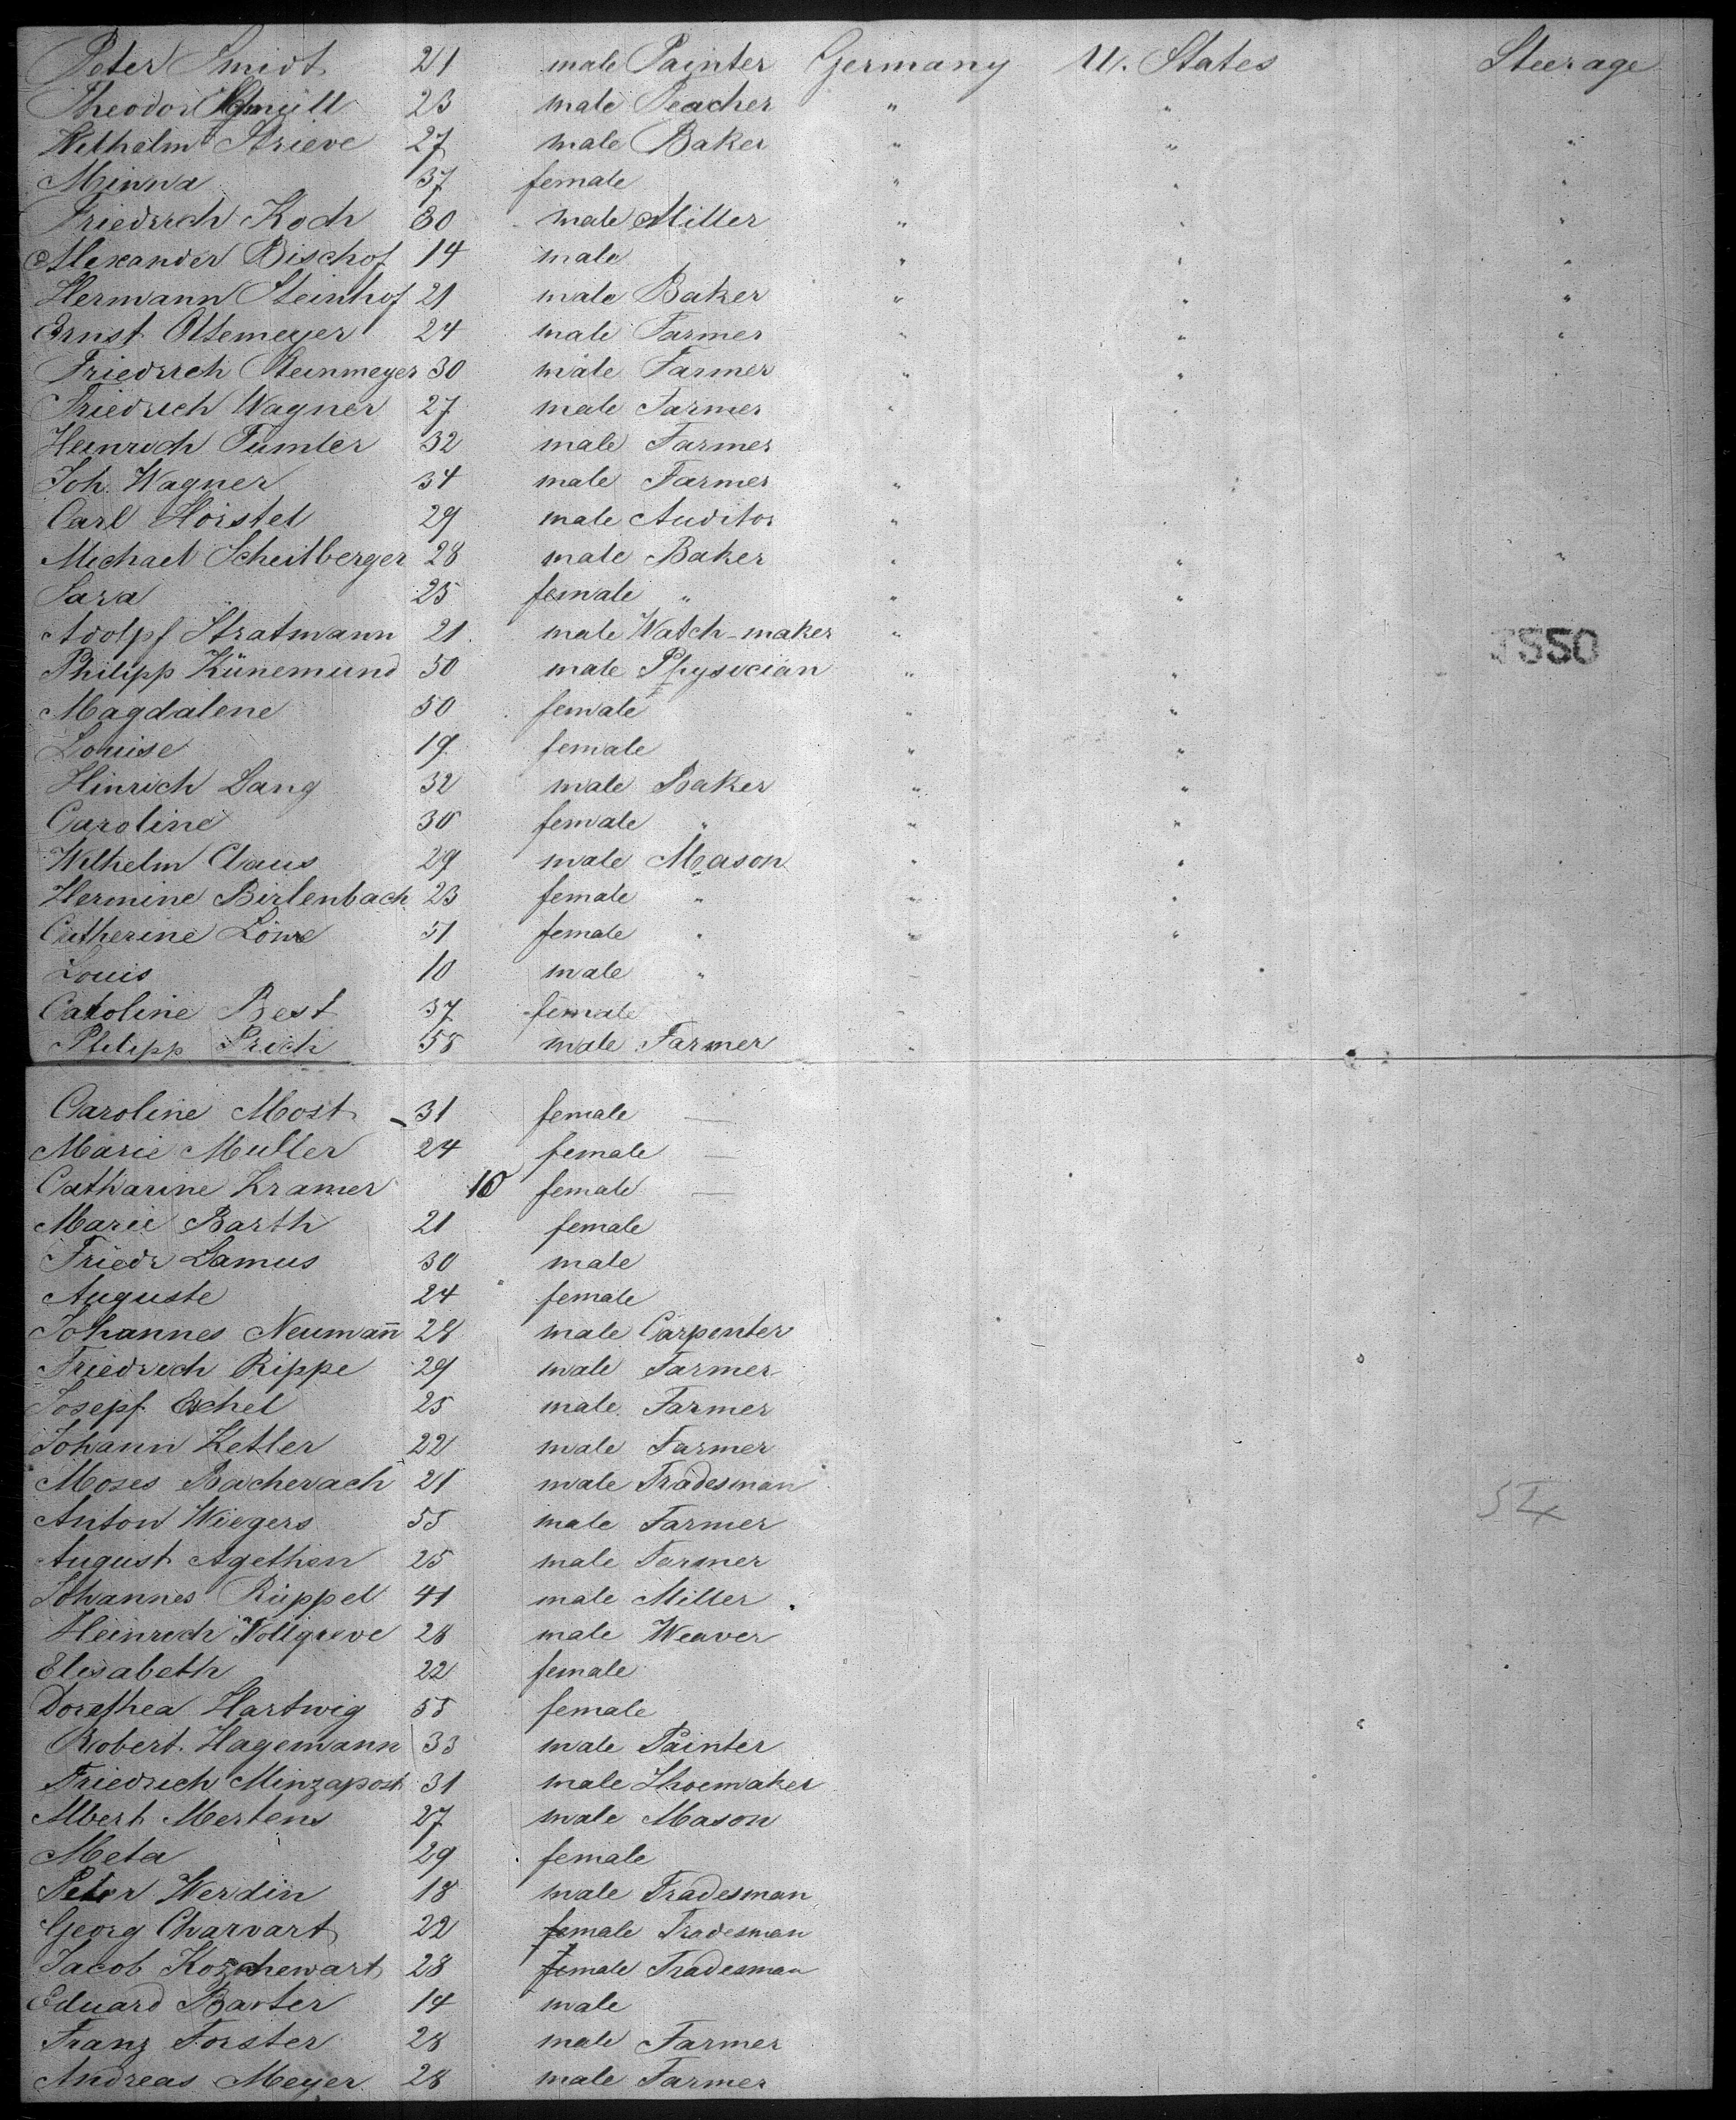 Peter Smidt 21 male Painter Germany U. States Steerage
Theodor 23 male Teacher " "
Wilhelm Strieve 27 male Baker " " "
Minna 37 female " " "
Friedrich Koch 30 male Miller " " "
Alexander Bischof 14 male " " "
Hermann Steinhof 21 male Baker " " "
Ernst Ottemeyer 24 male Farmer " " "
Friedrich Steinmeyer 30 male Farmer " " "
Friedrich Wagner 27 male Farmer " "
Heinrich Tümler 32 male Farmer
Joh. Wagner 34 male Farmer " "
Carl Hörstel 29 male Auditor " "
Michael Scheilberger 28 male Baker " " "
Sara 25 female " " "
Adolpf Stratmann 21 male Watch-maker "
Philipp Künemund 50 male Physician " "
Magdalene 50 female " "
Louise 19 female " "
Hinrich Lang 32 male Baker " "
Caroline 30 female " " "
Wilhelm Claus 29 male Mason " "
Hermine Birlenbach 23 female " " "
Catherine Löwe 51 female " " "
Louis 10 male " "
Caroline Best 37 female "
Philipp 58 male Farmer "
Caroline Most 31 female —
Marie Muller 24 female —
Catharine Kramer 10 female —
Marie Barth 21 female
Friedr Lamus 30 male
Auguste 24 female
Johannes Neumañ 28 male Carpenter
Friedrich Rippe 29 male Farmer
Josepf 25 male Farmer
Johann Ketler 22 male Farmer
Moses Bacherach 21 male Tradesman
Anton Wiegers 55 male Farmer
August Agethen 25 male Farmer
Johannes Rüppel 41 male Miller
Heinrich Nollgreve 28 male Weaver
Elisabeth 22 female
Dorothea Hartwig 55 female
Robert Hagemann 33 male Painter
Friedrich Minzapost 31 male Shoemaker
Albert Mertens 27 male Mason
Meta 29 female
Peter Werdin 18 male Tradesman
Georg Charvart 22 female Tradesman
Jacob 28 female Tradesman
Eduard Barter 14 male
Franz Forster 28 male Farmer
Andreas Meyer 28 male Farmer